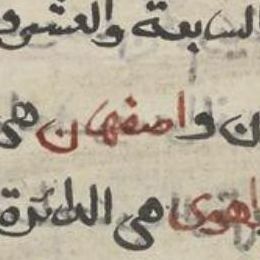 السابعة والعشرو
ن واصفهان هي
راهوى هي الدائرة